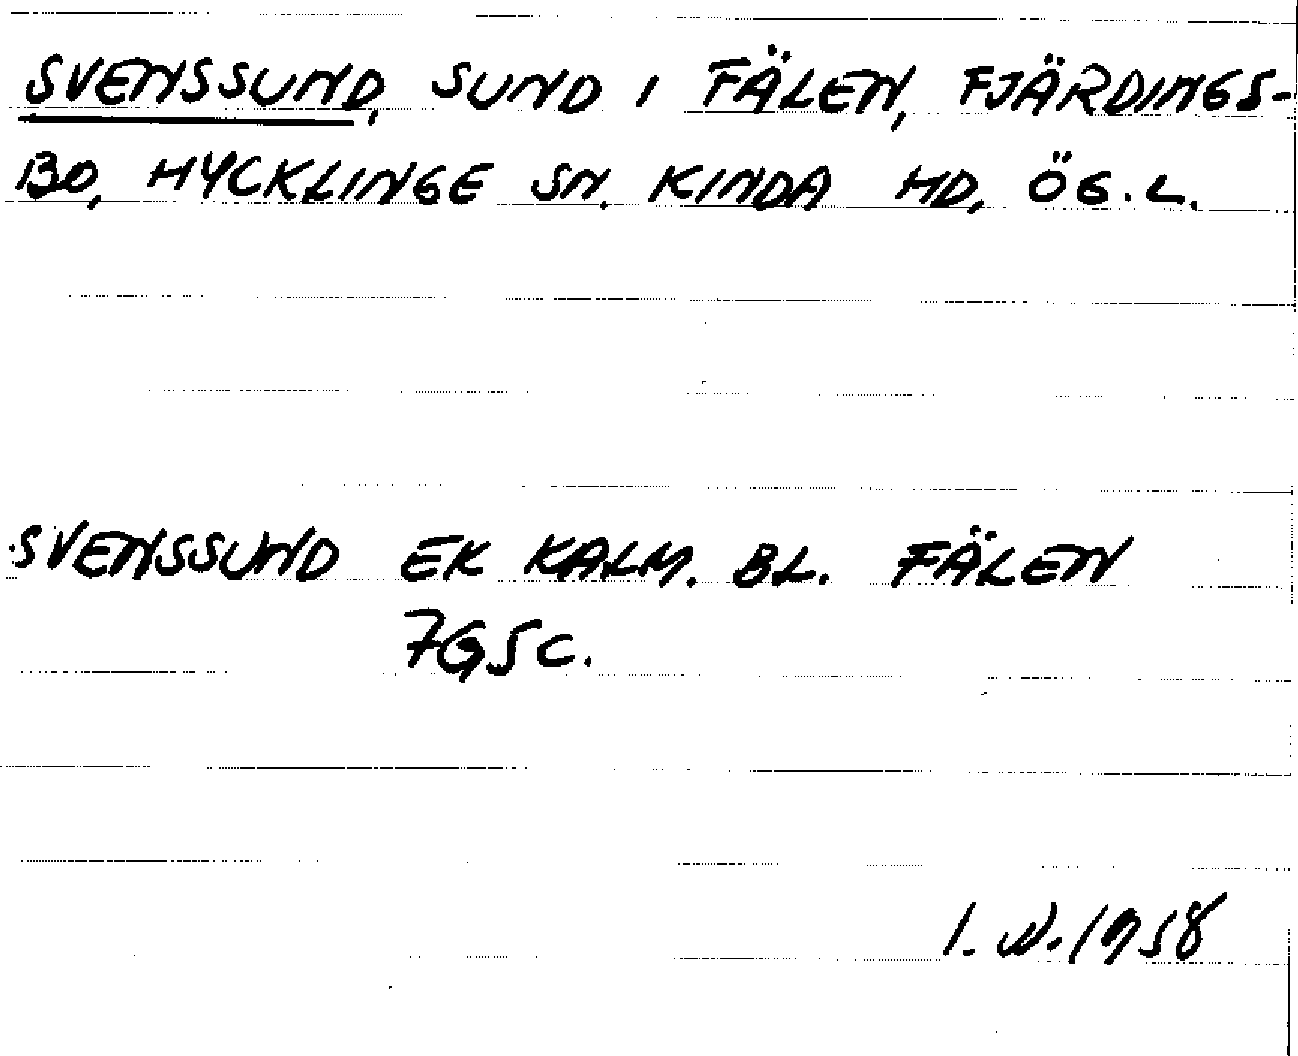 SVENSSUND, SUND I FÄLEN, FJÄRDINGS-
BO, HYCKLINGE SN. KINDA HD, ÖG.L.
SVENSSUND EK KALM. BL. FÄLEN
7G5c.
I.N.1958